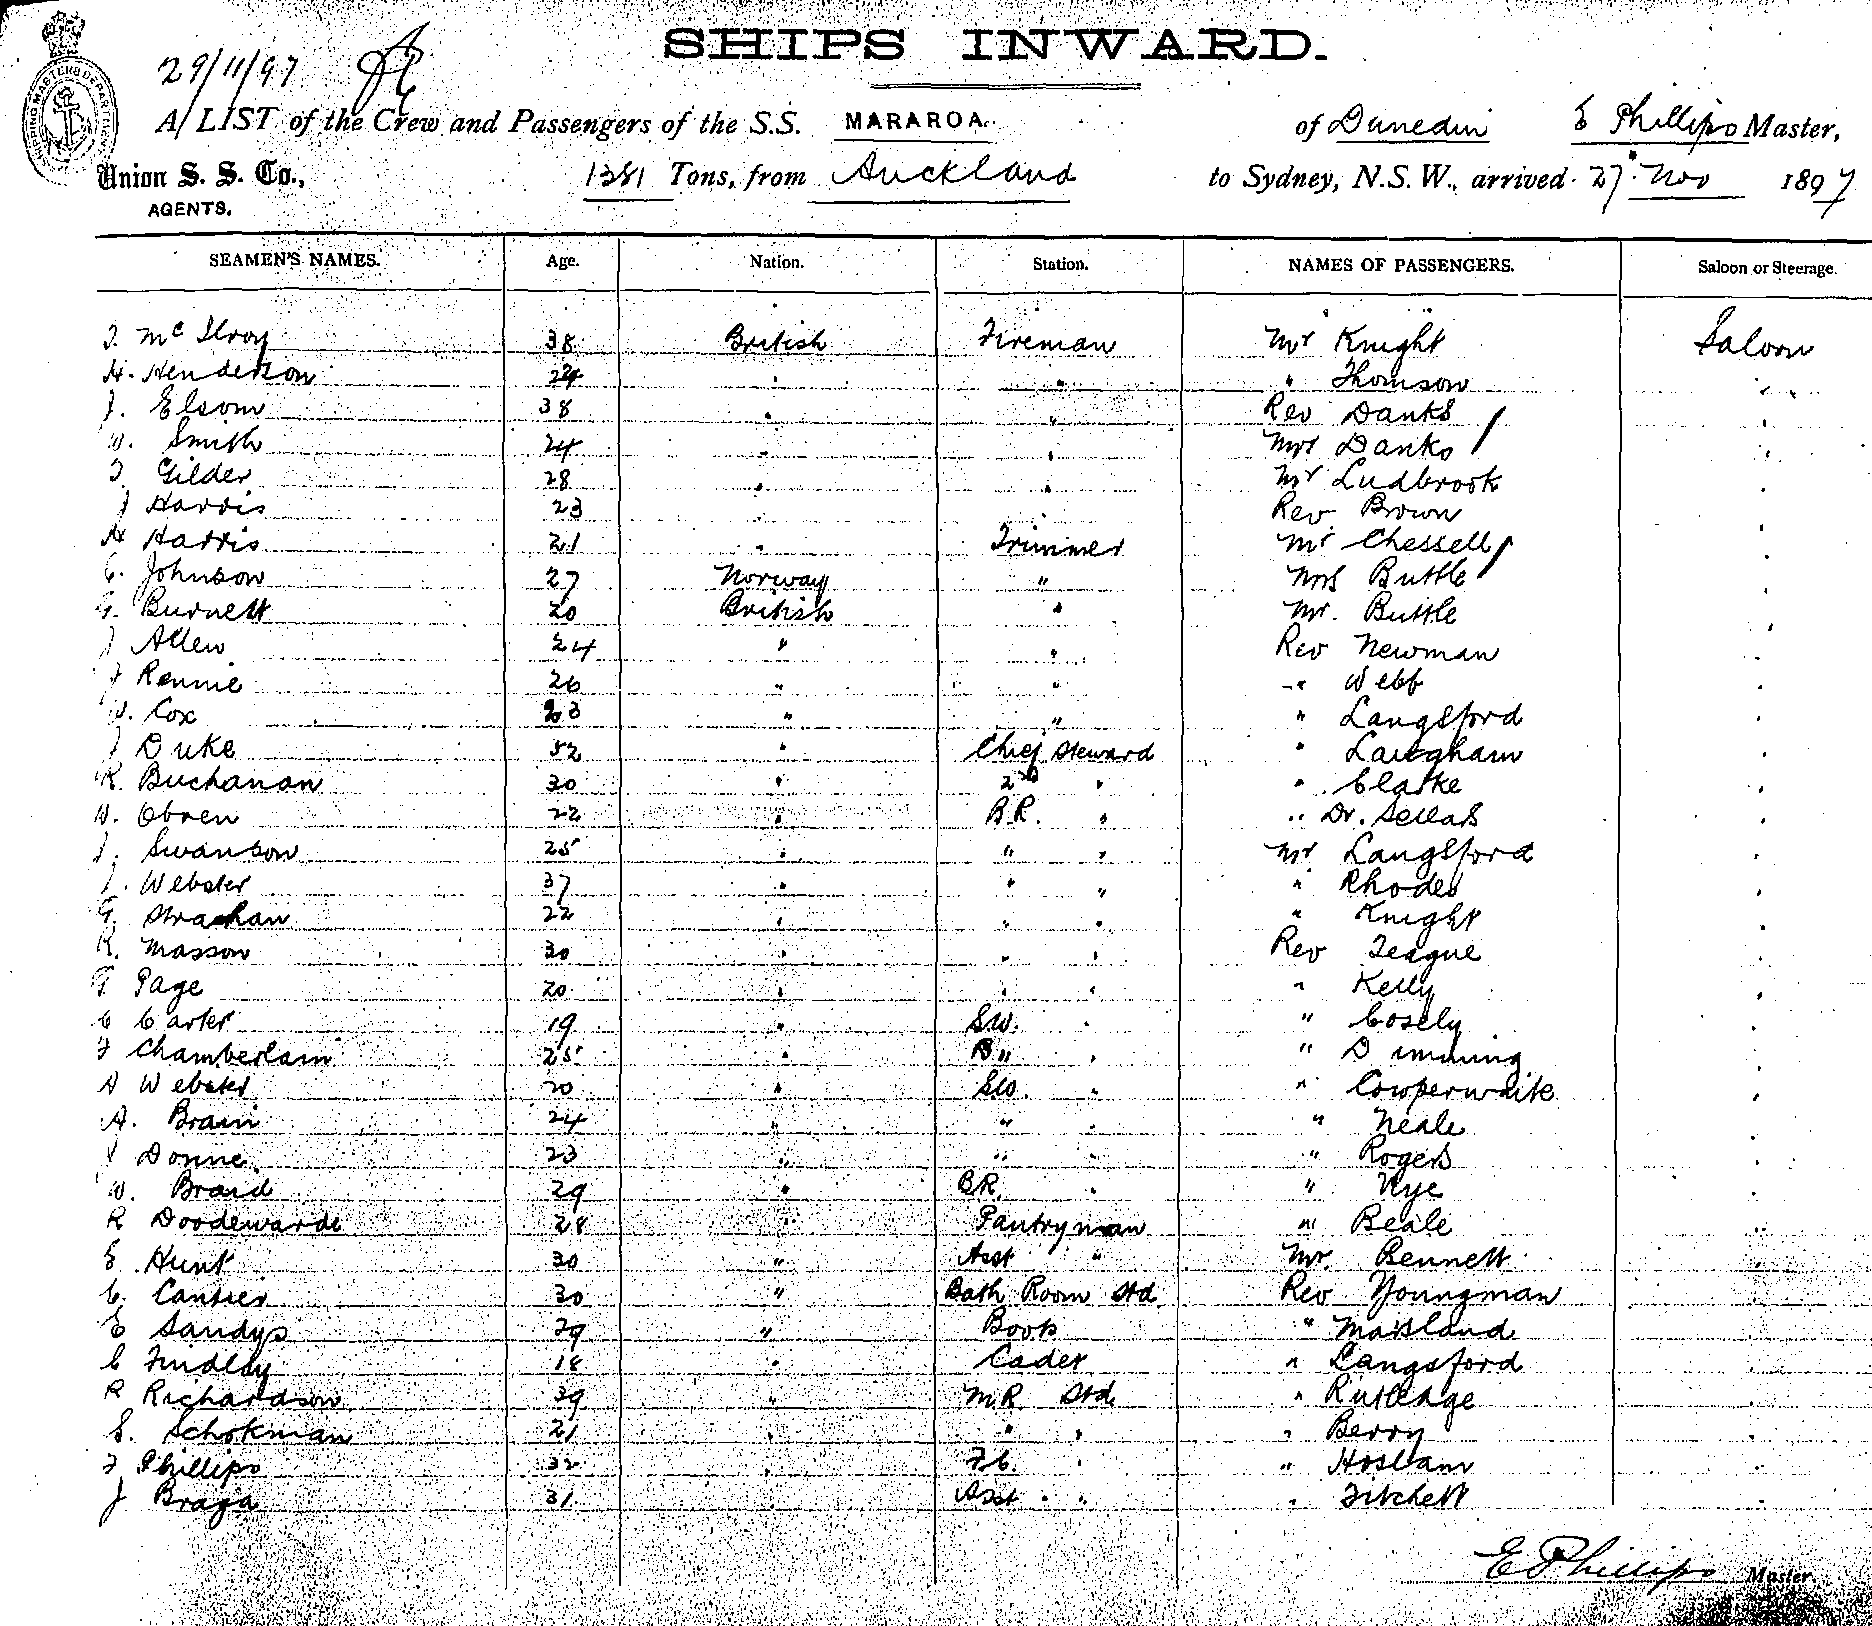 SHIPS INWARD.
29/11/97
A LIST of the Crew and Passengers of the S.S. MARAROA of Dunedin E Phillips Master,
Union S. S. Co., 1381 Tons, from Auckland to Sydney, N.S.W., arrived 27 Nov 1897
AGENTS.
SEAMEN'S NAMES. Age. Nation. Station. NAMES OF PASSENGERS. Saloon or Steerage.
J. McIlroy 38 British Fireman Mr Knight Saloon
H. Henderson 24 " " " Thomson "
J. Elsom 38 " " Rev Danks "
W. Smith 24 " " Mrs Danks "
J Gilder 28 " " Mr Ludbrook "
J Harris 23 " Rev Brown "
H Harris 21 " Trimmer Mr Chessell "
C. Johnson 27 Norway " Mrs Buttle "
G. Burnett 20 British " Mr. Buttle "
J Allen 24 " " Rev Newman "
J Rennie 26 " " " Webb "
W. Cox 23 " " " Langsford "
J Duke 52 " Chief Steward " Langham "
R. Buchanan 30 " 2nd " " Clarke "
W. Obren 22 " B.R. " " Dr. Sellars "
J. Swanson 25 " " " Mr Langsford "
J. Webster 37 " " " " Rhodes "
G. Strachan 22 " " " " Knight "
R. Masson 30 " " " Rev Teague "
T Page 20 " " " " Kelly "
C Carter 19 " SW. " " Cosely "
F Chamberlain 25 " B " " " Dimming "
A Webster 20 " SW. " " Cowperwaite "
A. Brain 24 " " " " Neale "
J Donne 23 " " " " Rogers "
W. Braid 29 " B.R. " " Nye "
R Doodewarde 28 " Pantryman " Beale "
E Hunt 30 " Asst " Mr Bennett "
C. Cantier 30 " Bath Room Std Rev Youngman "
E Sandys 29 " Boots " Maitland "
C Findlay 18 " Cadet " Langsford "
R Richardson 39 " M.R. Std " Rutledge "
S. Schokman 21 " " " " Berry "
F Phillips 32 " F.C. " " Hosban "
J Braga 31 " Asst " " Fitchett "
E Phillips Master